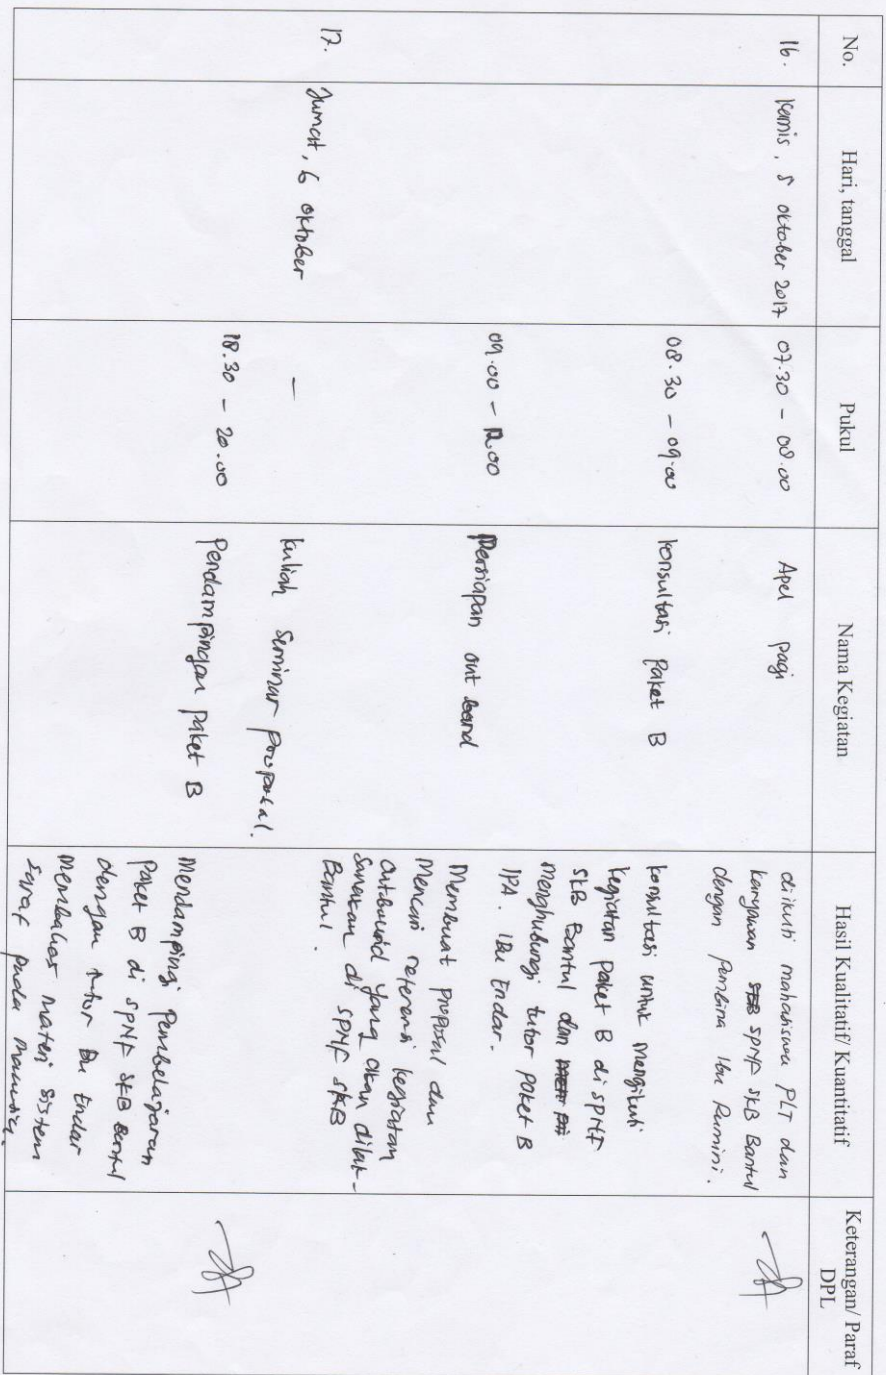 No.
Hari, tanggal
Pukul
Nama Kegiatan
Hasil Kualitatif/ Kuantitatif
Keterangan/ Paraf
DPL
16.
Kamis, 5 oktober 2017
07.30 - 08.00
Apel pagi
diikuti mahasiswa PLT dan
karyawan SPNF SKB Bantul
dengan pembina Ibu Rumini.
08.30 - 09.00
konsultasi paket B
konsultasi untuk mengikuti
kegiatan paket B di SPNF
SKB Bantul dan
menghubungi tutor paket B
IPA. IBu Endar.
09.00 - 12.00
Persiapan out band
Membuat proposal dan
Mencari referensi kegiatan
outbound yang akan dilak-
sanakan di SPNF SKB
Bantul.
17.
Jumat, 6 oktober
—
kuliah Seminar Proposal.
18.30 - 20.00
pendampingan paket B
Mendampingi pembelajaran
paket B di SPNF SKB Bantul
dengan tutor Bu Endar
membahas materi sistem
saraf pada manusia.